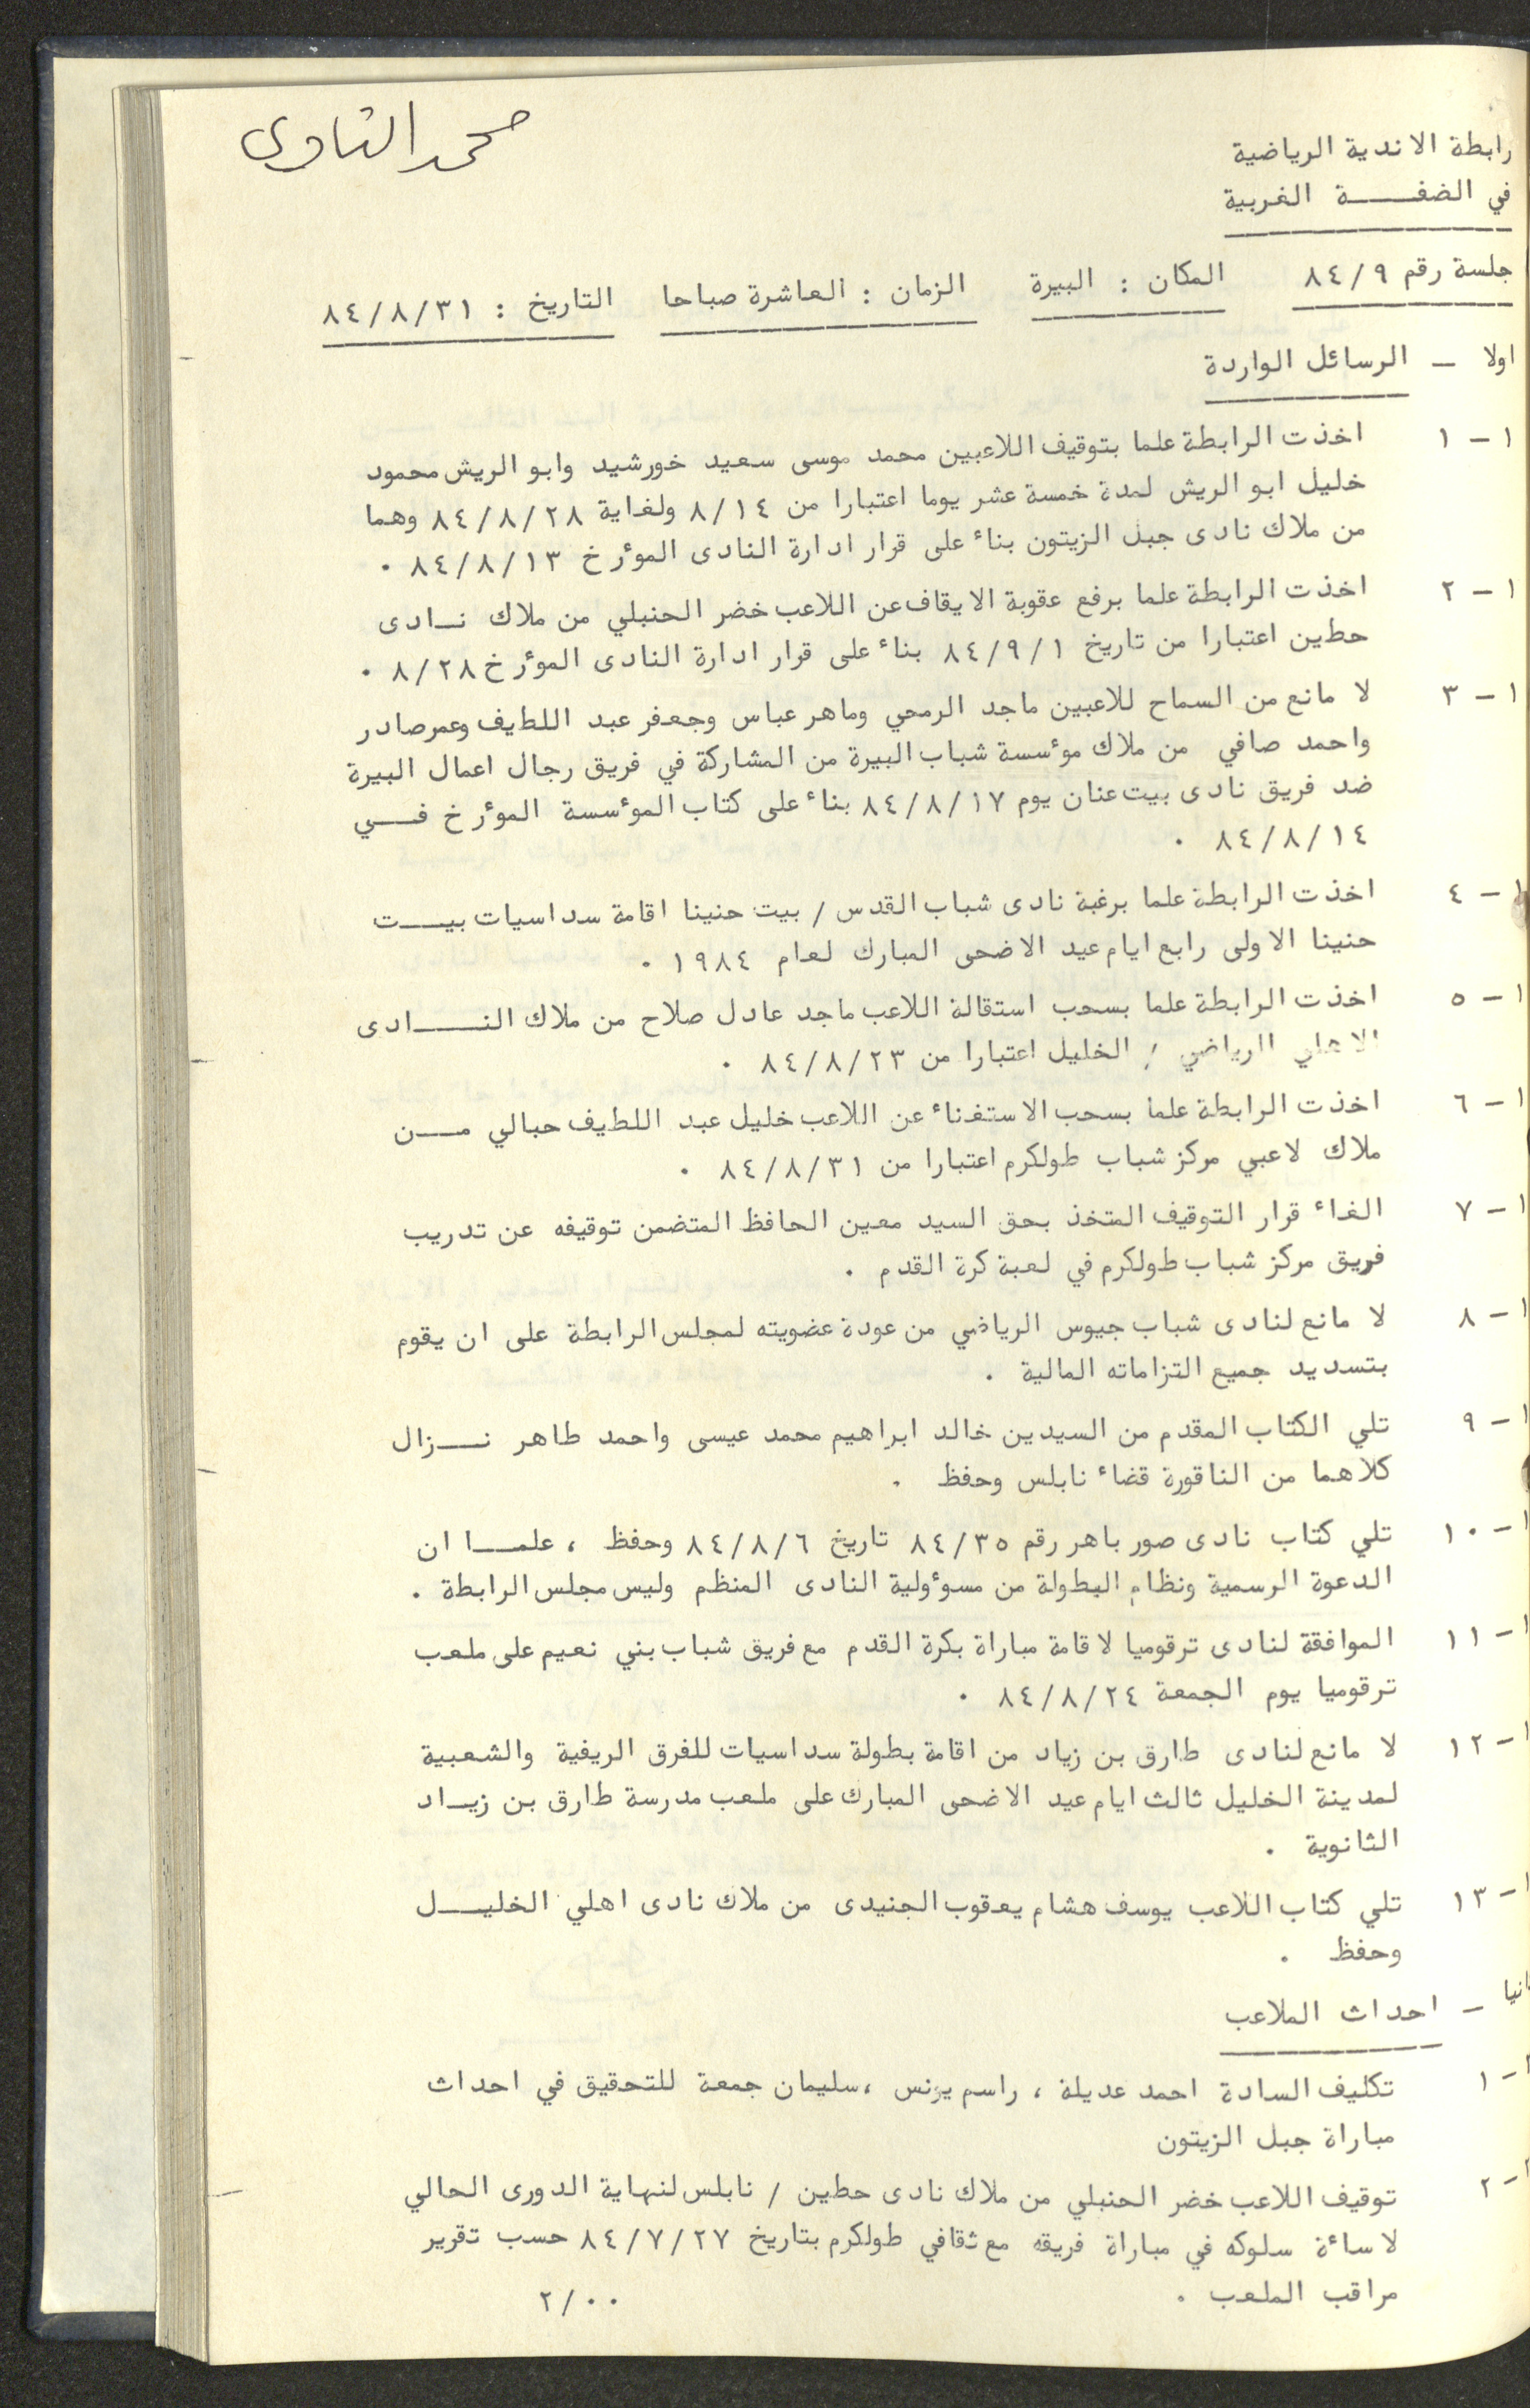 محمد النادى
رابطة الاندية الرياضية
في الضفة الغربية
جلسة رقم ٨٤/٩ المكان : البيرة الزمان : العاشرة صباحا التاريخ : ٨٤/٨/٣١
اولا – الرسائل الواردة
١ – ١ اخذت الرابطة علما بتوقيف اللاعبين محمد موسى سعيد خورشيد وابو الريش محمود
خليل ابو الريش لمدة خمسة عشر يوما اعتبارا من ٨/١٤ ولغاية ٨٤/٨/٢٨ وهما
من ملاك نادى جبل الزيتون بناء على قرار ادارة النادى المؤرخ ٨٤/٨/١٣ ٠
١ – ٢ اخذت الرابطة علما برفع عقوبة الايقاف عن اللاعب خضر الحنبلي من ملاك نادى
حطين اعتبارا من تاريخ ٨٤/٩/١ بناء على قرار ادارة النادى المؤرخ ٨/٢٨ ٠
١ – ٣ لا مانع من السماح للاعبين ماجد الرمحي وماهر عباس وجعفر عبد اللطيف وعمر صادر
واحمد صافي من ملاك مؤسسة شباب البيرة من المشاركة في فريق رجال اعمال البيرة
ضد فريق نادى بيت عنان يوم ٨٤/٨/١٧ بناء على كتاب المؤسسة المؤرخ في
٨٤/٨/١٤ ٠
١ – ٤ اخذت الرابطة علما برغبة نادى شباب القدس / بيت حنينا اقامة سداسيات بيت
حنينا الاولى رابع ايام عيد الاضحى المبارك لعام ١٩٨٤ ٠
١ – ٥ اخذت الرابطة علما بسحب استقالة اللاعب ماجد عادل صلاح من ملاك النادى
الاهلي الرياضي / الخليل اعتبارا من ٨٤/٨/٢٣ ٠
١ – ٦ اخذت الرابطة علما بسحب الاستغناء عن اللاعب خليل عبد اللطيف حبالي من
ملاك لاعبي مركز شباب طولكرم اعتبارا من ٨٤/٨/٣١ ٠
١ – ٧ الغاء قرار التوقيف المتخذ بحق السيد معين الحافظ المتضمن توقيفه عن تدريب
فريق مركز شباب طولكرم في لعبة كرة القدم ٠
١ – ٨ لا مانع لنادى شباب جيوس الرياضي من عودة عضويته لمجلس الرابطة على ان يقوم
بتسديد جميع التزاماته المالية ٠
١ – ٩ تلي الكتاب المقدم من السيدين خالد ابراهيم محمد عيسى واحمد طاهر نزال
كلاهما من الناقورة قضاء نابلس وحفظ ٠
١ – ١٠ تلي كتاب نادى صور باهر رقم ٨٤/٣٥ تاريخ ٨٤/٨/٦ وحفظ ، علما ان
الدعوة الرسمية ونظام البطولة من مسؤولية النادى المنظم وليس مجلس الرابطة ٠
١ – ١١ الموافقة لنادى ترقوميا لاقامة مباراة بكرة القدم مع فريق شباب بني نعيم على ملعب
ترقوميا يوم الجمعة ٨٤/٨/٢٤ ٠
١ – ١٢ لا مانع لنادى طارق بن زياد من اقامة بطولة سداسيات للفرق الريفية والشعبية
لمدينة الخليل ثالث ايام عيد الاضحى المبارك على ملعب مدرسة طارق بن زياد
الثانوية ٠
١ – ١٣ تلي كتاب اللاعب يوسف هشام يعقوب الجنيدى من ملاك نادى اهلي الخليل
وحفظ ٠
ثانيا – احداث الملاعب
٢ – ١ تكليف السادة احمد عديلة ، راسم يونس ، سليمان جمعة للتحقيق في احداث
مباراة جبل الزيتون
٢ – ٢ توقيف اللاعب خضر الحنبلي من ملاك نادى حطين / نابلس لنهاية الدورى الحالي
لاساءة سلوكه في مباراة فريقه مع ثقافي طولكرم بتاريخ ٨٤/٧/٢٧ حسب تقرير
مراقب الملعب ٠ ٢/٠٠